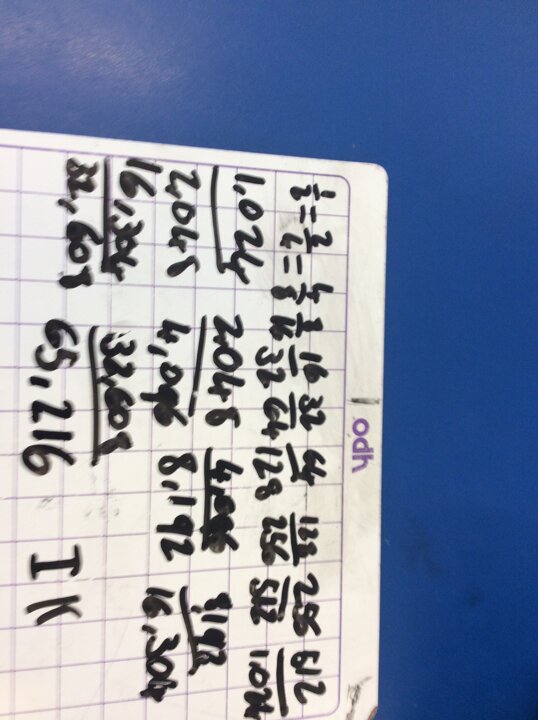 odh
1/2 = 2/4 = 4/8 8/16 16/32 32/64 64/128 128/256 256/512 512/1,024
1,024/2,048 2,048/4,096 4,096/8,192 8,192/16,304
16,304/32,608 32,608/65,216 IK